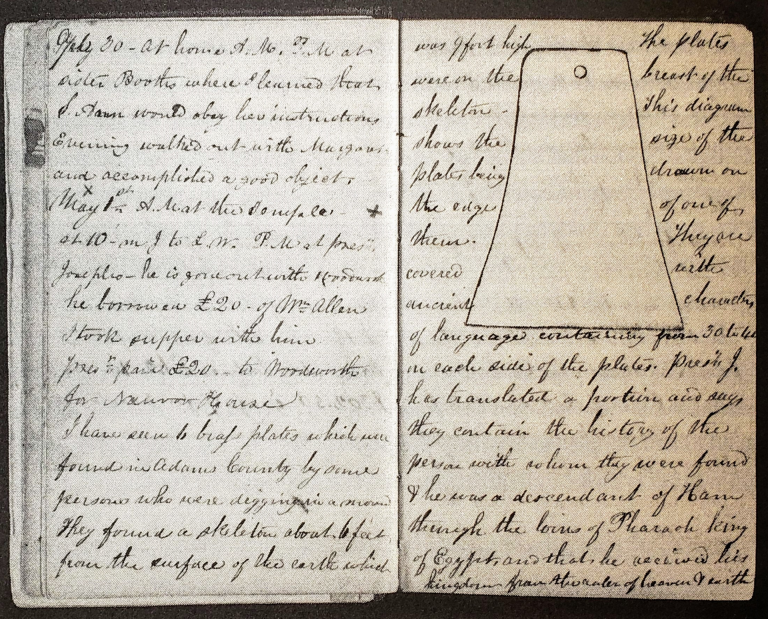 30 - At home A.M. P.M at
sister Booths where I learned that
S. Ann would obey her instructions
Evening walked out with Margaret
and accomplished a good object.
May 1st A.M at the Temple. +
at 10 m J to L. W. P.M at prest.
Josephs - he is gone out with Woodworth
he borrowed £20 - of Wm Allen
I took supper with him
Prest. paid £20 - to Wordsworth
for Nauvoo House
I have seen 6 brass plates which were
found in Adams County by some
persons who were digging in a mound
They found a skeleton about 6 feet
from the surface of the earth which
was 9 foot high The plates
were on the breast of the
skeleton - This diagram
shows the size of the
plates being drawn on
the edge of one of
them. They are
covered with
ancient characters
of language containing from 30 to 40
on each side of the plates. Prest. J.
has translated a portion and says
they contain the history of the
person with whom they were found
& he was a descendant of Ham
through the loins of Pharaoh king
of Egypt, and that he received his
kingdom from the ruler of heaven & earth